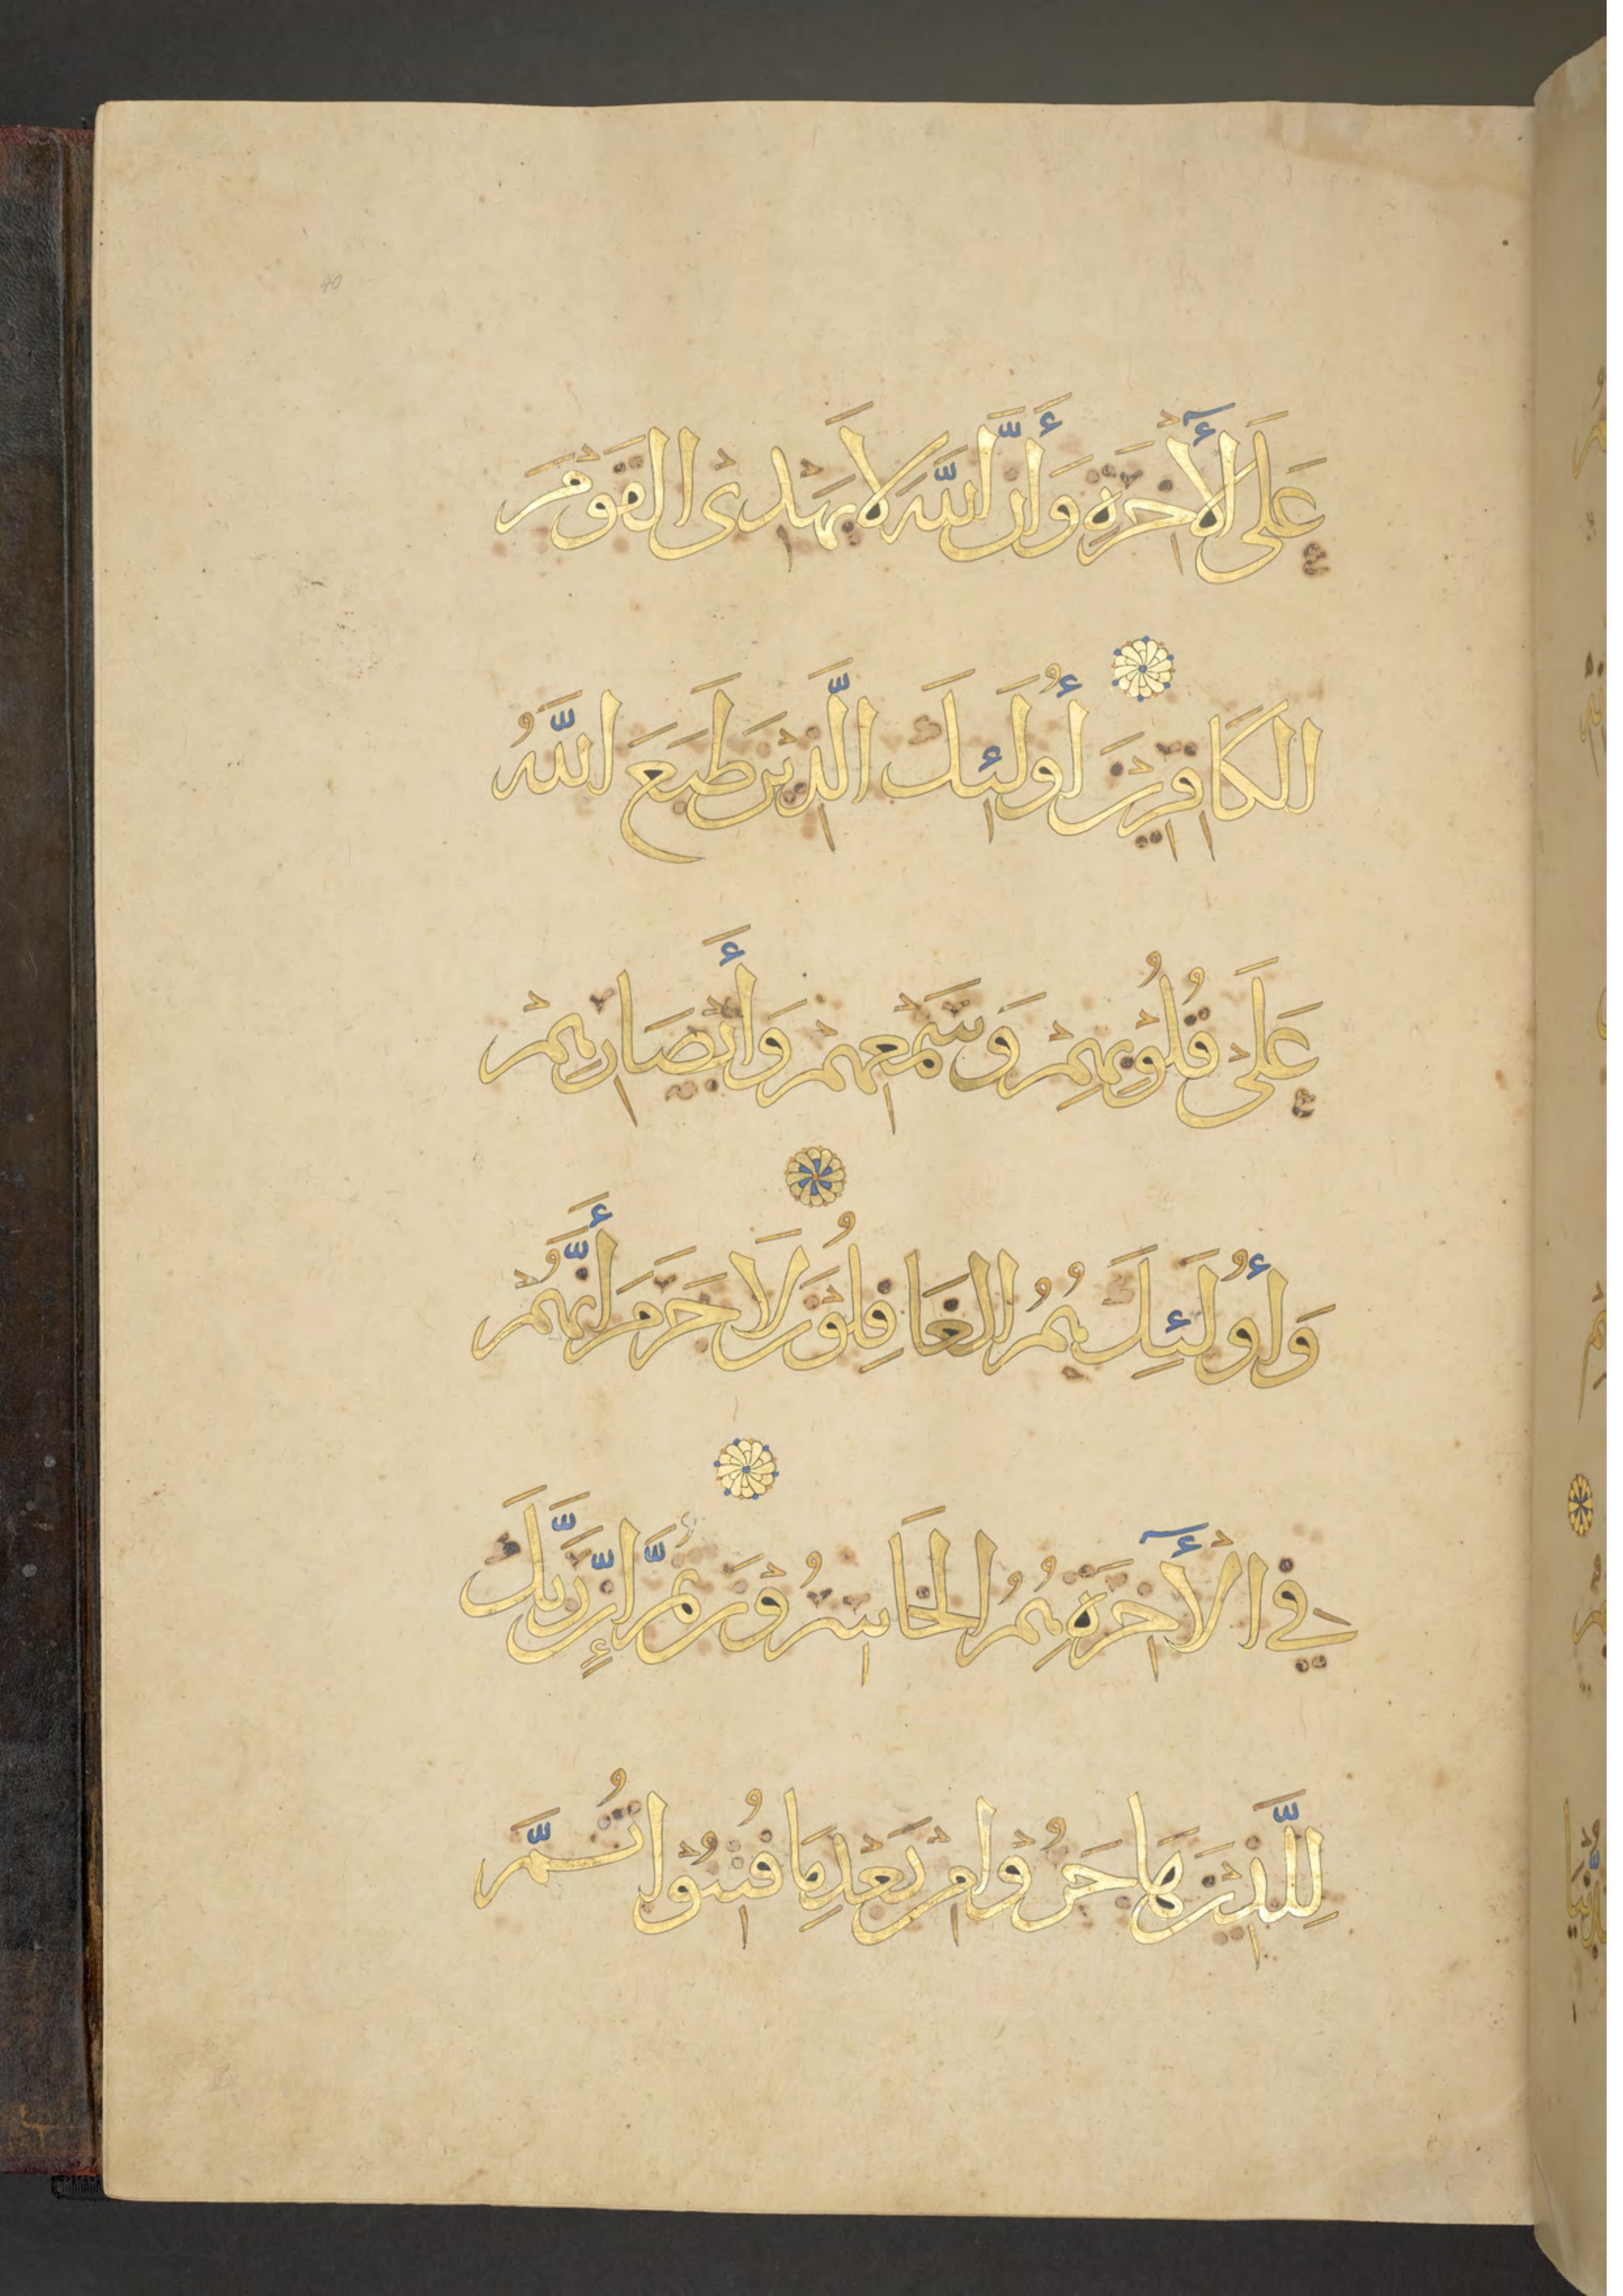 عَلَى الْأٓخِرَةِ وَأَنَّ اللَّهَ لَا يَهْدِى الْقَوْمَ
الكَافِرِيْنَ أُولَئِكَ الَّذِيْنَ طَبَعَ اللَّهُ
عَلَىْ قُلُوْبِهِمْ وَسَمْعِهِمْ وَأَبْصَارِهِمْ
وَأُولَئِكَ هُمُ الغَافِلُوْنَ لَا جَرَمَ أَنَّهُمْ
فِي الْأٓخِرَةِ هُمُ الخَاسِرُوْنَ ثُمَّ إِنَّ رَبَّكَ
لِلَّذِيْنَ هَاجَرُوْا مِنْ بَعْدِ مَا فُتِنُوْا ثُمَّ
40